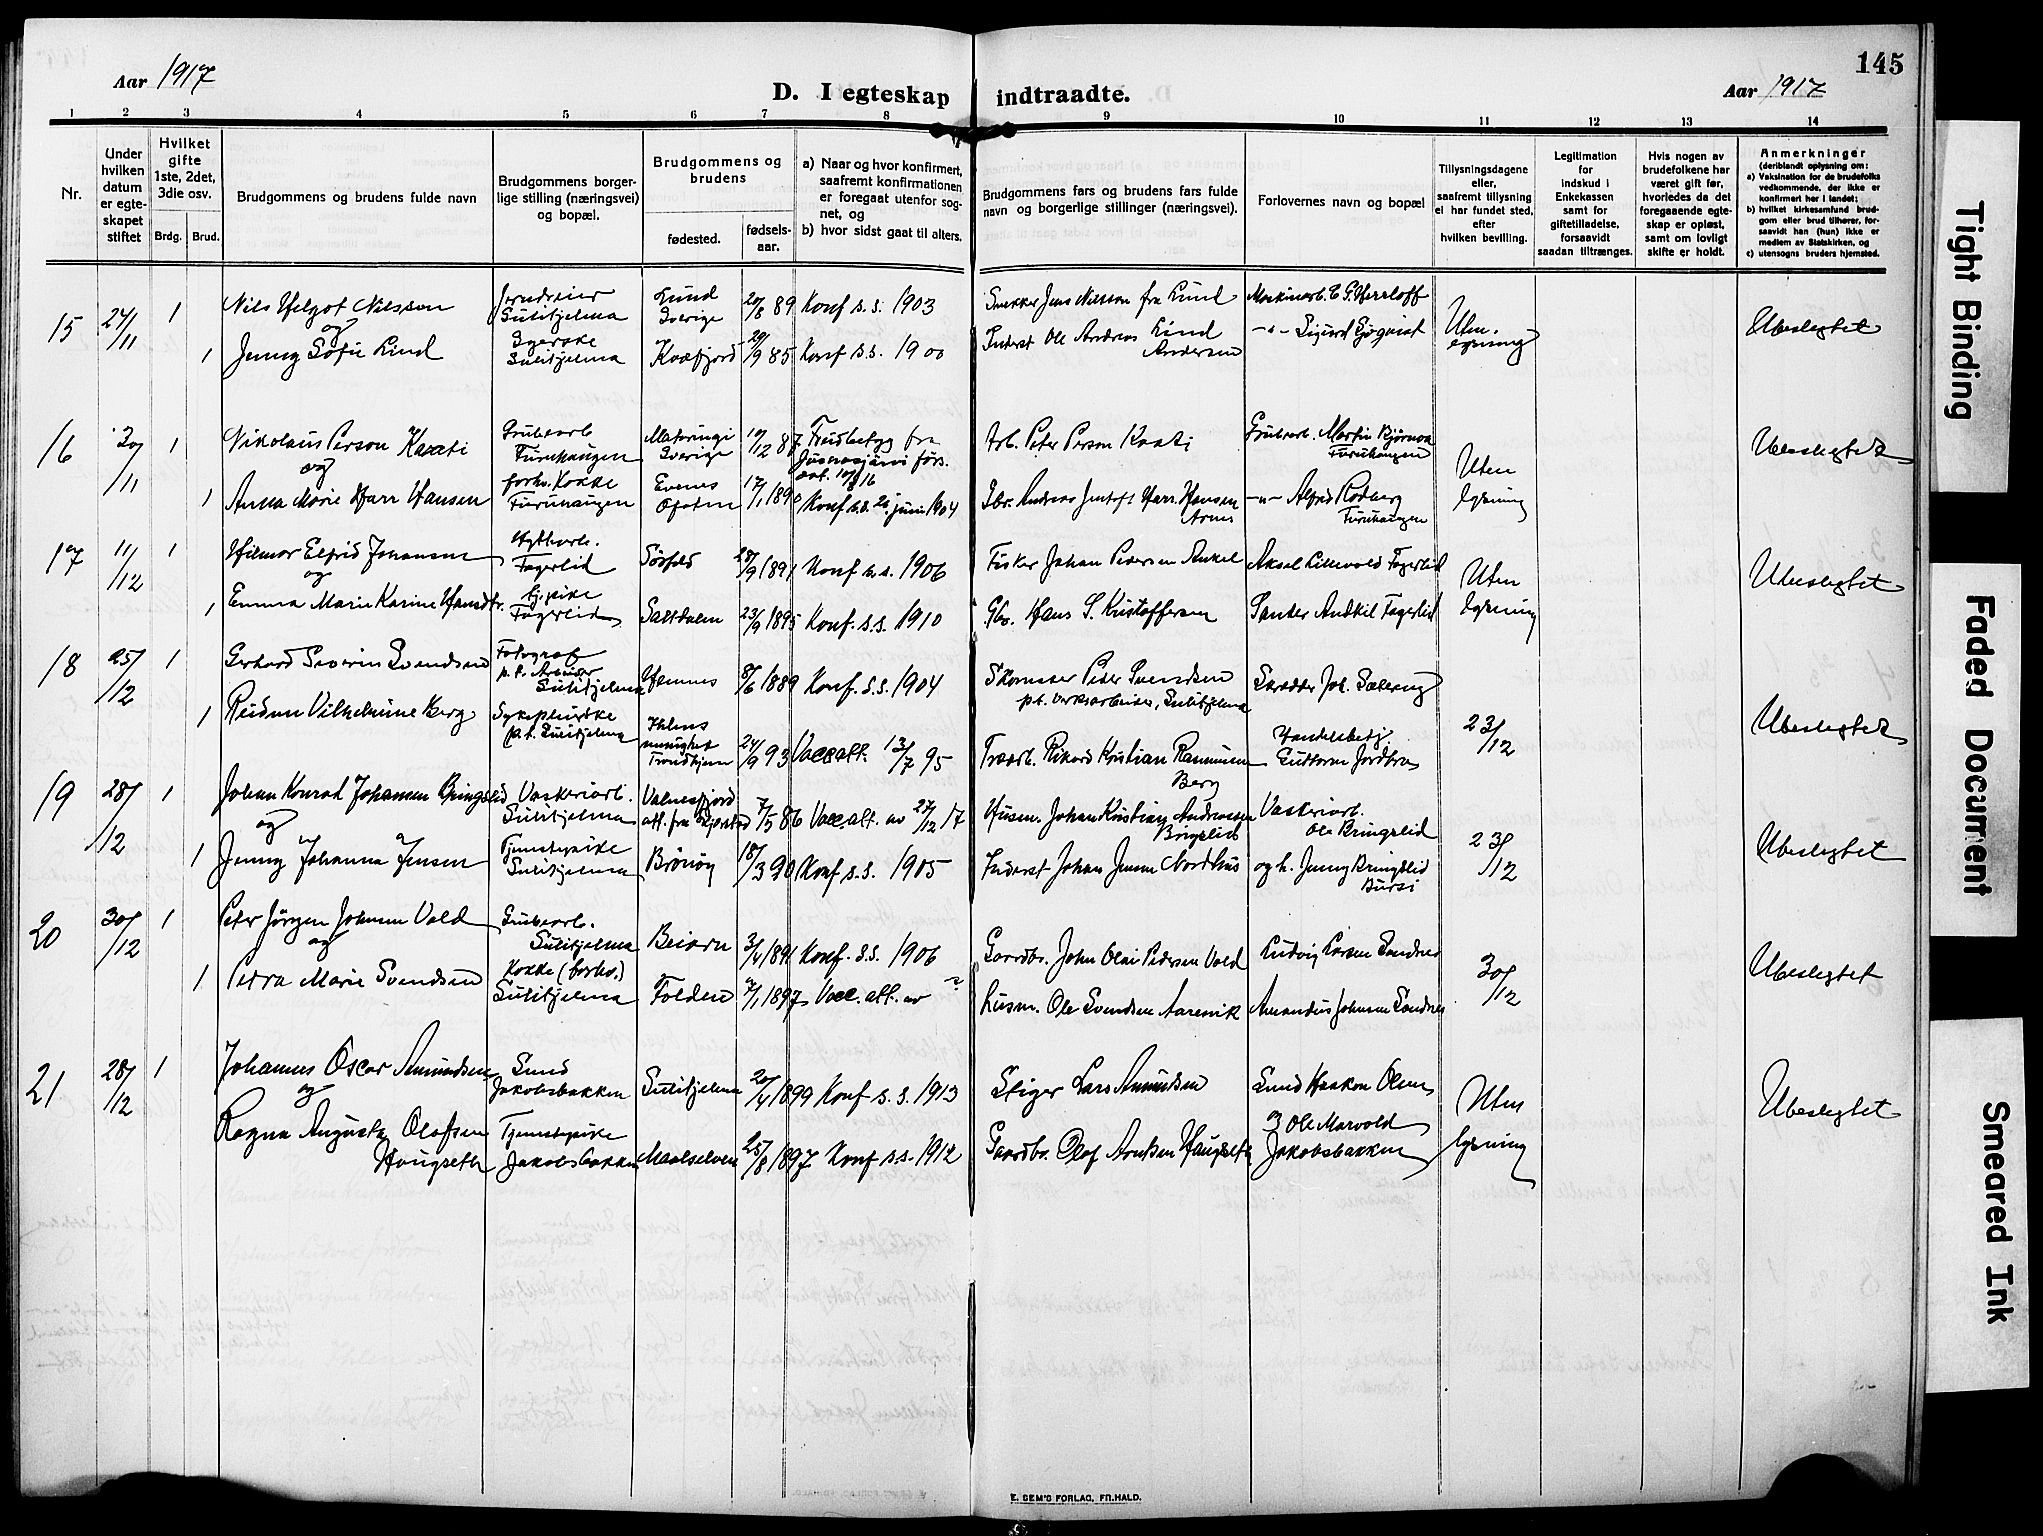 145
Aar 1917
D. I egteskap indtraadte.
Aar 1917
1 2 3 4 5 6 7 8 9 10 11 12 13 14
Nr.
Under
hvilken
datum
er egte-
skapet
stiftet
Hvilket
gifte
1ste, 2det,
3die osv.
Brdg. Brud.
Brudgommens og brudens fulde navn
Brudgommens borger-
lige stilling (næringsvei)
og bopæl.
Brudgommens og
brudens
fødested.
fødsels-
aar.
a) Naar og hvor konfirmert,
saafremt konfirmationen
er foregaat utenfor sog-
net, og
b) hvor sidst gaat til alters.
Brudgommens fars og brudens fars fulde
navn og borgerlige stillinger (næringsvei).
Forlovernes navn og bopæl
Tillysningsdagene
eller,
saafremt tillysning
ei har fundet sted,
efter
hvilken bevilling.
Legitimation
for
indskud i
Enkekassen
samt for
giftetilladelse,
forsaavidt
saadan tiltrænges.
Hvis nogen av
brudefolkene har
været gift før,
hvorledes da det
foregaaende egte-
skap er opløst,
samt om lovligt
skifte er holdt.
Anmerkninger
(deriblandt oplysning om:
a) Vaksination for de brudefolks
vedkommende, der ikke er
konfirmert her i landet;
b) hvilket kirkesamfund brud-
gom eller brud tilhører, for-
saavidt han (hun) ikke er
medlem av Statskirken, og
c) utensogns bruders hjemsted.
15 24/11 1 Nils Helgot Nilsson Jerndreier Sulitjelma Lund Sverige 20/8 89 Konf s.s. 1903 Snekker Jens Nilsson fra Lund Maskinarb. Uten lysning Ubeslegtet
og
1 Jenny Sofie Lind Syerske Sulitjelma Kvæfjord 20/9 85 Konf s.s. 1900 Inderst Ole Andreas Lind Andersen Sigurd Sjøqvist
16 30/11 1 Nikolaus Person Grubearb Furuhaugen Sverige 10/12 87 Arb. Peter Person Grubearb. Martin BjørnvA Furuhaugen Uten lysning Ubeslegtet
og
1 Anna Marie Harr Hansen forhv. Kokke Furuhaugen Evenes Ofoten 17/1 1890 juni 1904 Andreas Harr Hansen Alfred Rødberg Furuhaugen
17 11/12 1 Hilmar Elfrid Johansen Hyttearb. Fagerlid Sørfold 28/9 1891 Konf s.s. 1906 Fisker Johan Pedersen Aksel Lillevold Fagerlid Uten lysning Ubeslegtet
og
1 Emma Marie Karine Hansdtr. tj. pike Fagerlid Saltdalen 23/9 1895 Konf. s.s. 1910 Gbr. Hans S. Kristoffersen Fagerlid
18 25/12 1 Gerhard Severin Svendsen Fotograf p.t. Arbeider Sulitjelma Hemnes 8/6 1889 Konf. s.s. 1904 Skomaker Peder Svendsen pt. verksarbeider, Sulitjelma Skrædder Joh. 23/12 Ubeslegtet
1 Reidun Vilhelmine Berg Sykepleierske p.t. Sulitjelma Ihlens menighet Trondhjem 24/9 93 Vacc att. 13/7 95 Rikard Kristian Rasmussen Berg Handelsbetj. Guttorm Jordbro
19 28/12 1 Johan Konrad Johansen Bringslid Vaskeriarb. Sulitjelma Valnesfjord att. fra Skjerstad 7/5 86 Vacc. att. av 27/12 17 Husm. Johan Kristian Andreassen Bringslid Vaskeriarb. Ole Bringslid 23/12 Ubeslegtet
og
1 Jenny Johanna Jensen Tjenestepike Sulitjelma Brönöy 18/3 90 Konf s.s. 1905 Inderst Johan Jensen Nordhus og h. Jenny Bringslid Bursi
20 30/12 1 Peter Jörgen Johnsen Vold Grubearb. Sulitjelma Beiarn 3/4 1891 Konf. s.s. 1906 Gaardbr. John Olai Pedersen Vold Ludvig Larsen Sandnes 30/12 Ubeslegtet
og
1 Petra Marie Svendsen Kokke (forhv.) Sulitjelma Folden 7/1 1897 Vacc. att. av ? Husm. Ole Svendsen Aarsvik Amandus Johnsen Sandnes
21 28/12 1 Johannes Oscar Amundsen Smed Jakobsbakken Sulitjelma 20/4 1899 Konf s.s. 1913 Stiger Lars Amundsen Smed Haakon Olsen Uten lysning Ubeslegtet
og
Ragna Augusta Olafsen Haugseth Tjenestepike Jakobsbakken Maalselven 25/8 1897 Konf s.s. 1912 Gaardbr. Olaf Arntsen Haugseth og Ole Marvold Jakobsbakken
E. SEM'S FORLAG, FR.HALD.
Tight Binding
Faded Document
Smeared Ink